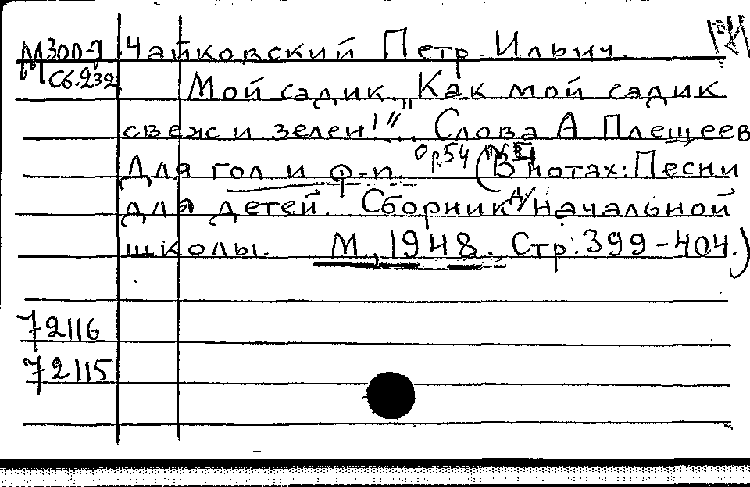 М300-9 Чайковский Петр Ильич.
Сб.232 Мой садик. „Как мой садик
свеж и зелен!" .. Слова А Плещеев
Ор.54
Для гол и ф-п. (В нотах: Песни
для детей. Сборник д/ начальной
школы. М, 1948. Стр: 399-404.)
72116
72115